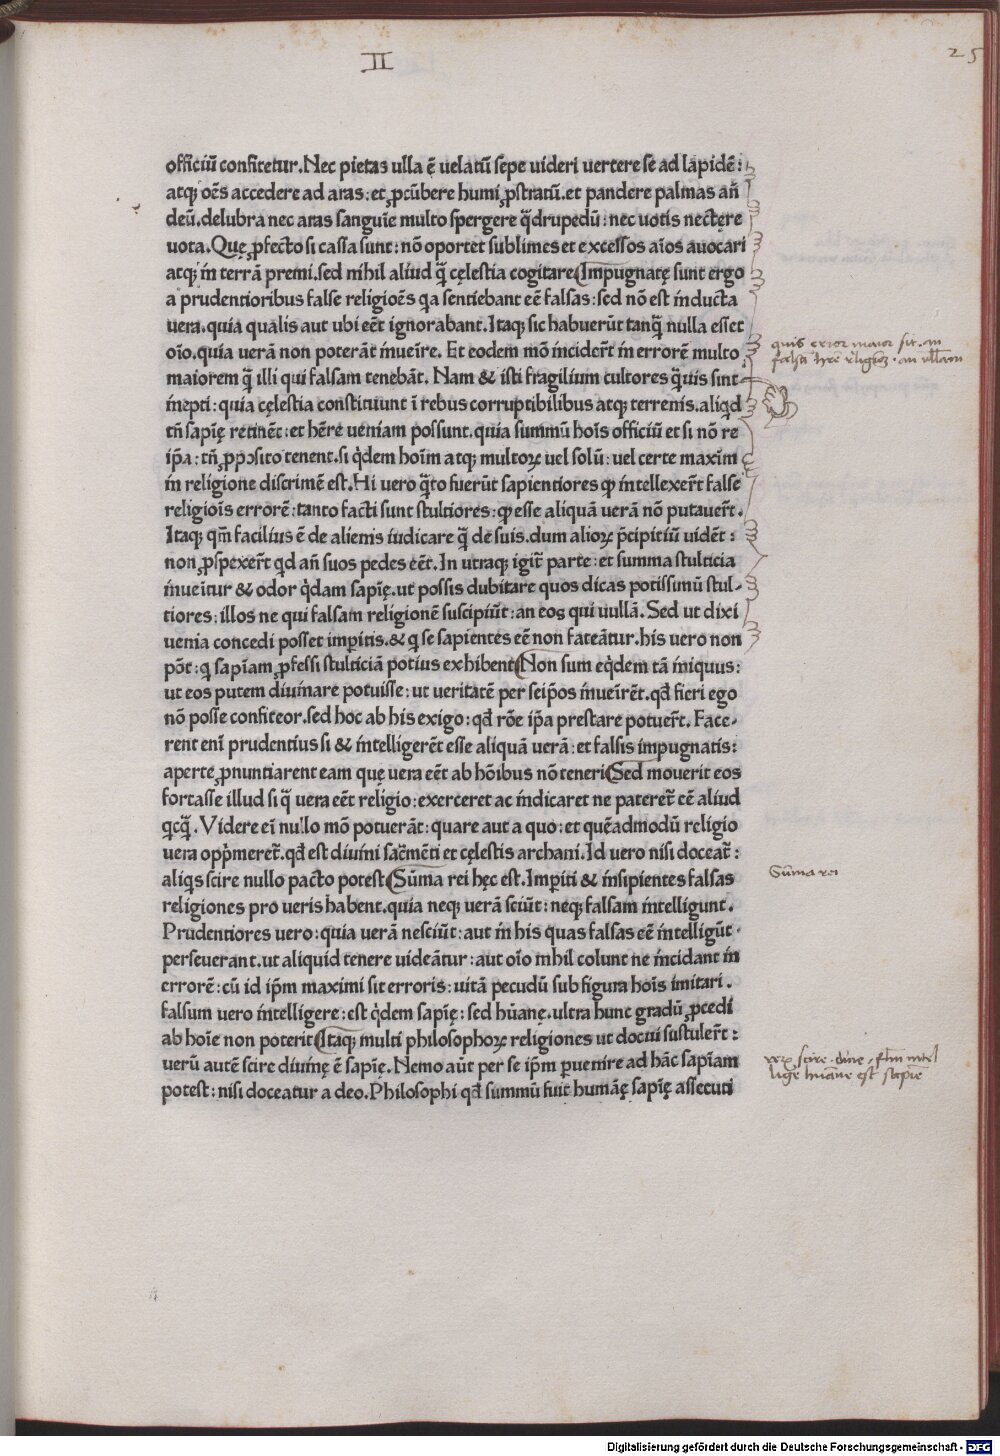 II
25
officiũ confitetur. Nec pietas ulla ẽ uelatũ sepe uideri uertere se ad lapidẽ:
atqꝫ oẽs accedere ad aras: et ꝓcũbere humi ꝓstratũ. et pandere palmas añ
deũ. delubra nec aras sanguĩe multo spergere q̃drupedũ: nec uotis nectere
uota. Quę ꝓfecto si cassa sunt: nõ oportet sublimes et excessos aĩos auocari
atqꝫ in terrã premi. sed nihil aliud q̃ cęlestia cogitare Impugnatę sunt ergo
a prudentioribus false religiões qa sentiebant eẽ falsas: sed nõ est inducta
uera. quia qualis aut ubi eẽt ignorabant. Itaqꝫ sic habuerũt tanq̃ nulla esset
oĩo. quia uerã non poterãt inueĩre. Et eodem mõ incider̃t in errorẽ multo
maiorem q̃ illi qui falsam tenebãt. Nam & isti fragilium cultores q̃uis sint
inepti: quia cęlestia constituunt ĩ rebus corruptibilibus atqꝫ terrenis. aliqd
tñ sapĩę retinẽt: et hẽre ueniam possunt. quia summũ hoĩs officiũ et si nõ re
ip̃a: tñ ꝓposito tenent. si q̇dem hoĩm atqꝫ multoꝝ uel solũ: uel certe maxim
in religione discrimẽ est. Hi uero q̃to fuerũt sapientiores ꝙ intellexer̃t false
religioĩs errorẽ: tanto facti sunt stultiores: ꝙ esse aliquã uerã nõ putauer̃t.
Itaqꝫ qm̃ facilius ẽ de alienis iudicare q̃ de suis. dum alioꝝ p̃cipitiũ uidẽt:
non ꝓspexer̃t qd añ suos pedes eẽt. In utraqꝫ igit̃ parte: et summa stulticia
inueĩtur & odor q̇dam sapĩę. ut possis dubitare quos dicas potissimũ stul-
tiores: illos ne qui falsam religionẽ suscipiũt: an eos qui nullã. Sed ut dixi
uenia concedi posset imꝑitis. & q se sapientes eẽ non fateãtur. his uero non
põt: q sapĩam ꝓfessi stulticiã potius exhibent Non sum eq̇dem tã iniquus:
ut eos putem diuinare potuisse: ut ueritatẽ per seip̃os inueĩrẽt. qd̃ fieri ego
nõ posse confiteor. sed hoc ab his exigo: qd̃ rõe ip̃a prestare potuer̃t. Face-
rent enĩ prudentius si & intelligerẽt esse aliquã uerã: et falsis impugnatis:
aperte ꝓnuntiarent eam quę uera eẽt ab hõibus nõ teneri Sed mouerit eos
fortasse illud si q̃ uera eẽt religio: exerceret ac indicaret ne pateret̃ eẽ aliud
qcq̃. Videre eĩ nullo mõ potuerãt: quare aut a quo: et quẽadmodũ religio
uera opp̃meret̃. qd̃ est diuini sac̃mẽti et cęlestis archani. Id uero nisi doceat̃:
aliqs scire nullo pacto potest Sũma rei hęc est. Imꝑiti & insipientes falsas
religiones pro ueris habent. quia neqꝫ uerã sciũt: neqꝫ falsam intelligunt.
Prudentiores uero: quia uerã nesciũt: aut in his quas falsas eẽ intelligũt
perseuerant. ut aliquid tenere uideãtur: aut oĩo nihil colunt ne incidant in
errorẽ: cũ id ip̃m maximi sit erroris: uitã pecudũ sub figura hoĩs imitari.
falsum uero intelligere: est q̇dem sapĩę: sed hũanę. ultra hunc gradũ ꝓcedi
ab hoĩe non poterit Itaqꝫ multi philosophoꝝ religiones ut docui sustuler̃t:
uerũ autẽ scire diuinę ẽ sapĩę. Nemo aũt per se ip̃m ꝑuenire ad hãc sapĩam
potest: nisi doceatur a deo. Philosophi qd̃ summũ fuit humãę sapĩę assecuti
quis error maior sit. an
falsã hr̃e religioẽ. an nullam
Sũma rei
scire diuĩe, falsũ intel
lige humane est sapiẽ
Digitalisierung gefördert durch die Deutsche Forschungsgemeinschaft - DFG